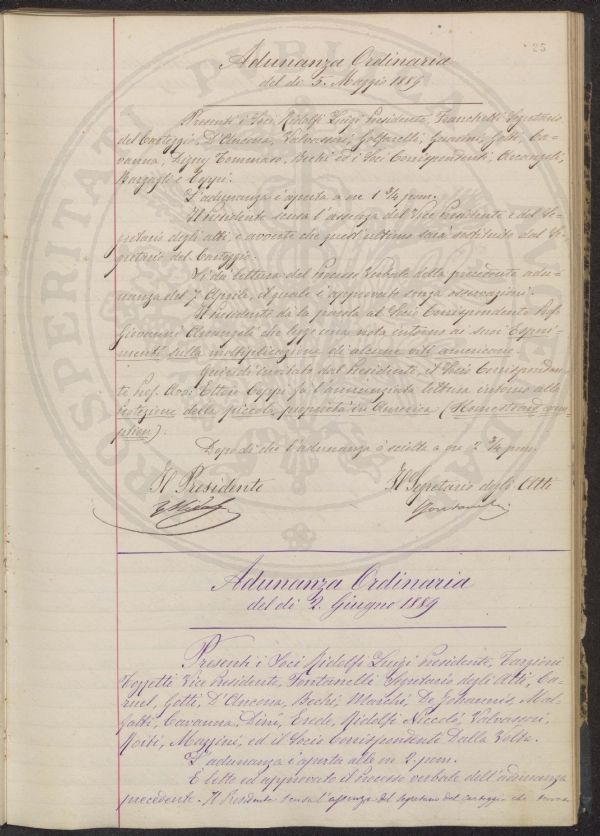 25
Adunanza Ordinaria
del dì 5. Maggio 1889
Presenti i Soci Ridolfi Luigi Presidente, Franchetti Segretario
del Carteggio, D'Ancona, Valvassori, Golfarelli, Guarini, Gotti, Ca-
vanna, Digny Tommaso, Bechi ed i Soci Corrispondenti Arcangeli,
Barzagli e Coppi.
L'adunanza è aperta a ore 1 3/4 pom.
Il Presidente scusa l'assenza del Vice Presidente e del Se-
gretario degli atti, e avverte che quest'ultimo sarà sostituito dal Se-
gretario del Carteggio.
Si dà lettura del Processo Verbale della precedente adu-
nanza del 7 Aprile, il quale è approvato senza osservazioni.
Il Presidente dà la parola al Socio Corrispondente Prof.
Giovanni Arcangeli che legge una nota intorno ai suoi Esperi-
menti sulla moltiplicazione di alcune viti americane.
Quindi invitato dal Presidente, il Socio Corrisponden-
te Prof. Avv. Ettore Coppi fa l'annunziata lettura intorno alla
protezione della piccola proprietà in America (Homestead exem-
ption).
Dopo di che l'adunanza è sciolta a ore 2 3/4 pom.
Il Presidente
Il Segretario degli Atti
L Ridolfi
Fontanelli
Adunanza Ordinaria
del dì 2. Giugno 1889
Presenti i Soci Ridolfi Luigi Presidente, Targioni
Tozzetti Vice Presidente, Fontanelli Segretario degli Atti, Ca-
ruel, Gotti, D'Ancona, Bechi, Marchi, De Johannis, Mal-
fatti, Cavanna, Dini, Ende, Ridolfi Niccolò, Valvassori,
Roiti, Mazzini, ed il Socio Corrispondente Dalla Volta.
L'adunanza è aperta alle ore 2. pom.
È letto ed approvato il Processo verbale dell'adunanza
precedente. Il Presidente scusa l'assenza del Segretario del Carteggio che